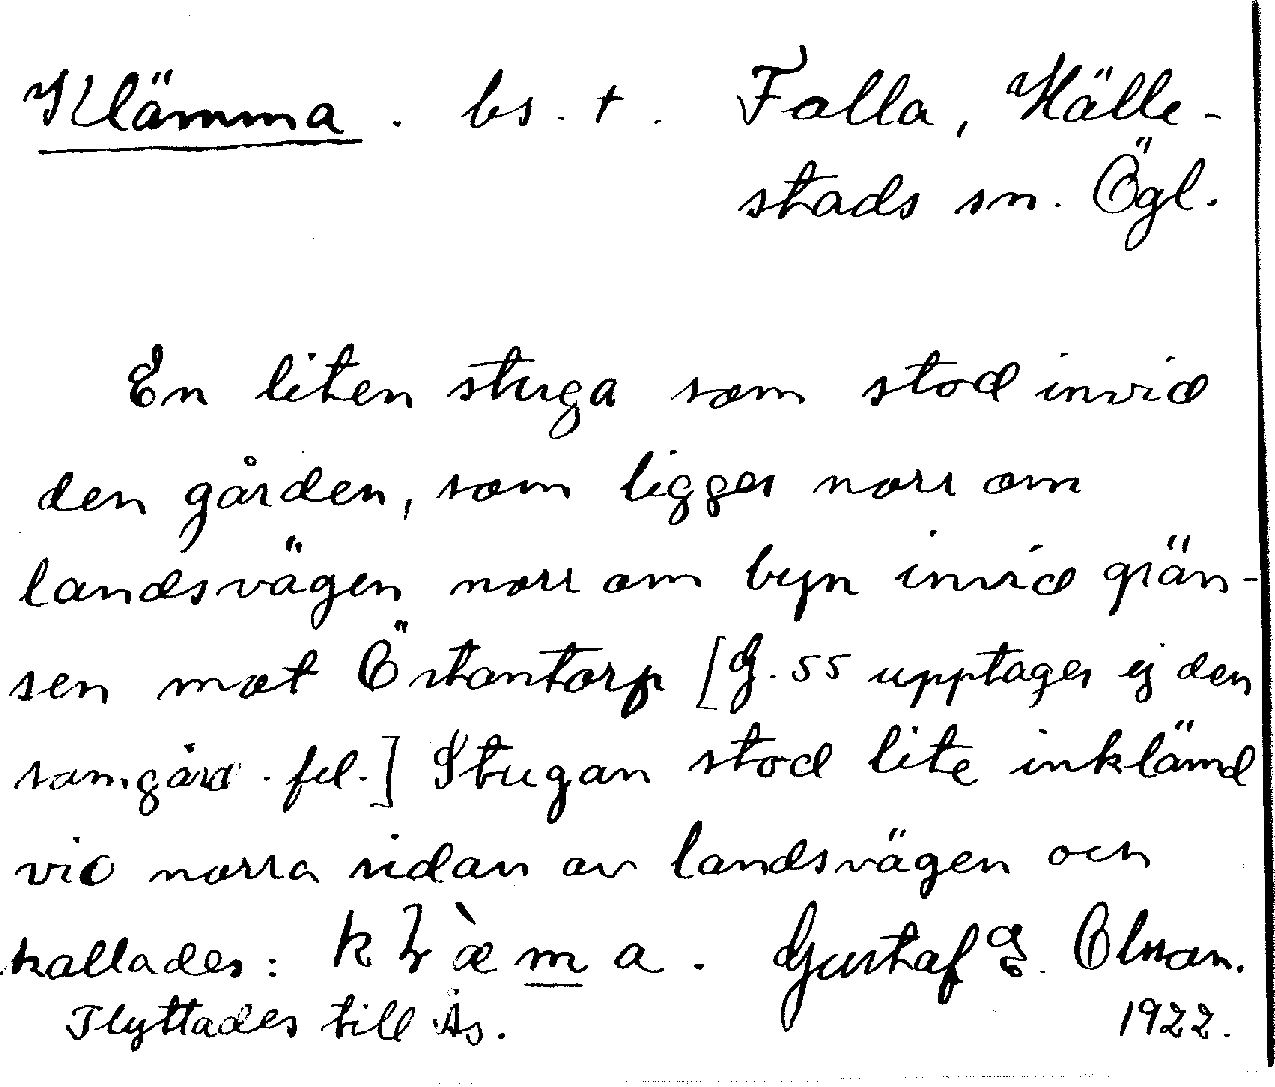 Klämma. bs. †. Falla, Hälle-
stads sn. Ögl.
En liten stuga som stod invid
den gården, som ligger norr om
landsvägen norr om byn invid grän-
sen mot Östantorp [G. 55 upptager ej den
samgård. fel.] Stugan stod lite inklämd
vid norra sidan av landsvägen och
kallades: a. Gustaf Olsson.
Flyttades till Ås. 1922.